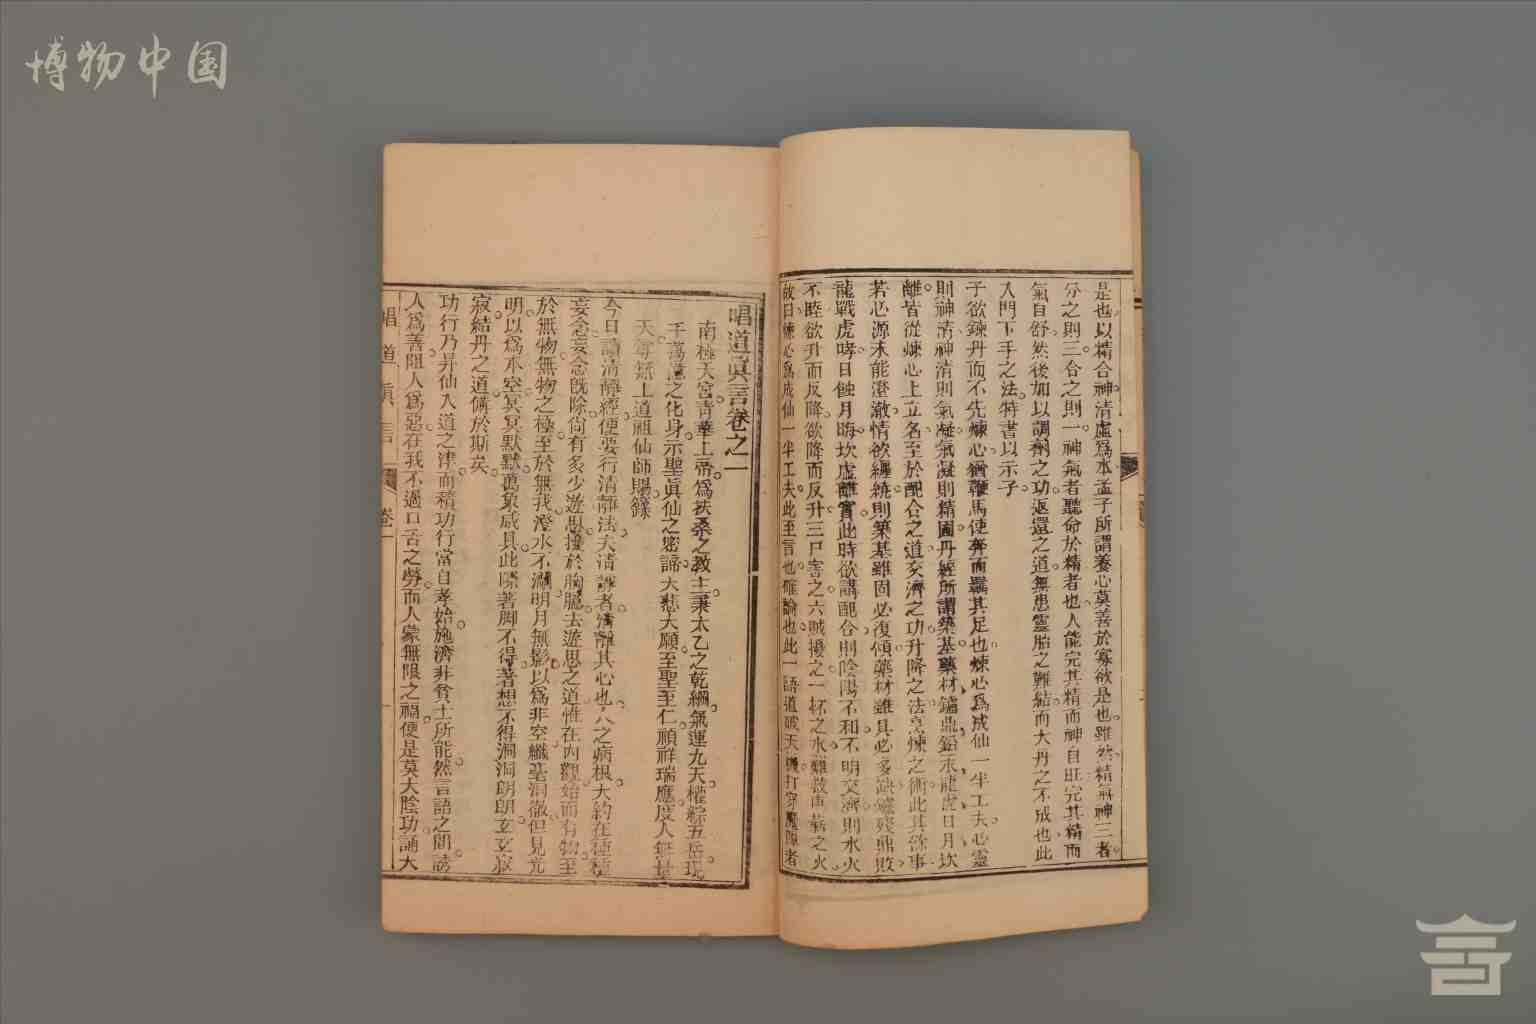 博物中国
是也以精合神清虛爲本孟子所謂養心莫善於寡欲是也雖然精氣神三者
分之則三合之則一神氣者聽命於精者也人能完其精而神自旺完其精而
氣自舒然後加以調劑之功返還之道無患靈胎之難結而大丹之不成也此
入門下手之法特書以示子
子欲鍊丹而不先煉心猶鞭馬使奔而羈其足也煉心爲成仙一半工夫心靈
則神清神清則氣凝氣凝則精固丹經所謂築基藥材鑪鼎鉛汞龍虎日月坎
離皆從煉心上立名至於配合之道交濟之功升降之法烹煉之術此其餘事
若心源未能澄澈情欲纏繞則築基雖固必復傾藥材雖具必多缺鑪殘鼎敗
龍戰虎哮日蝕月晦坎虛離實此時欲講配合則陰陽不和不明交濟則水火
不睦欲升而反降欲降而反升三尸害之六賊擾之一杯之水難救車薪之火
故曰煉心爲成仙一半工夫此至言也確論也此一語道破天機打穿魔障者
唱道眞言卷之一
南極天宮青華上帝爲扶桑之教主秉太乙之乾綱氣運九天權綜五岳現
千萬億之化身示聖眞仙之密諦大悲大願至聖至仁禎祥瑞應度人無量
天尊無上道祖仙師賜籙
今日講清靜經便要行清靜法夫清靜者清靜其心也人之病根大約在種種
妄念妄念旣除尙有多少遊思攪於胸臆去遊思之道惟在內觀始而有物至
於無物無物之極至於無我澄水不瀾明月無影以爲非空纖毫洞徹但見光
明以爲本空冥冥默默萬象咸具此際著脚不得著想不得洞洞朗朗玄玄寂
寂結丹之道備於斯矣
功行乃昇仙入道之津而積功行當自孝始施濟非貧士所能然言語之間誘
人爲善阻人爲惡在我不過口舌之勞而人蒙無限之福便是莫大陰功誦大
唱道眞言
卷一